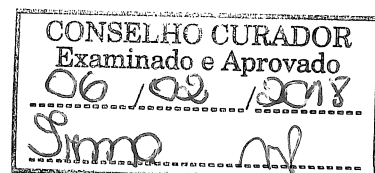 CONSELHO CURADOR
Examinado e Aprovado
06 / 02 / 2018